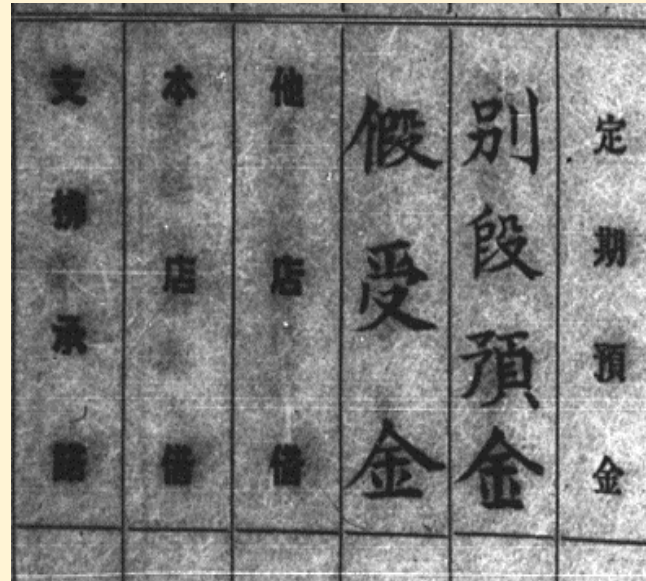 定期預金
別段預金
假受金
他店借
本店借
支拂承諾